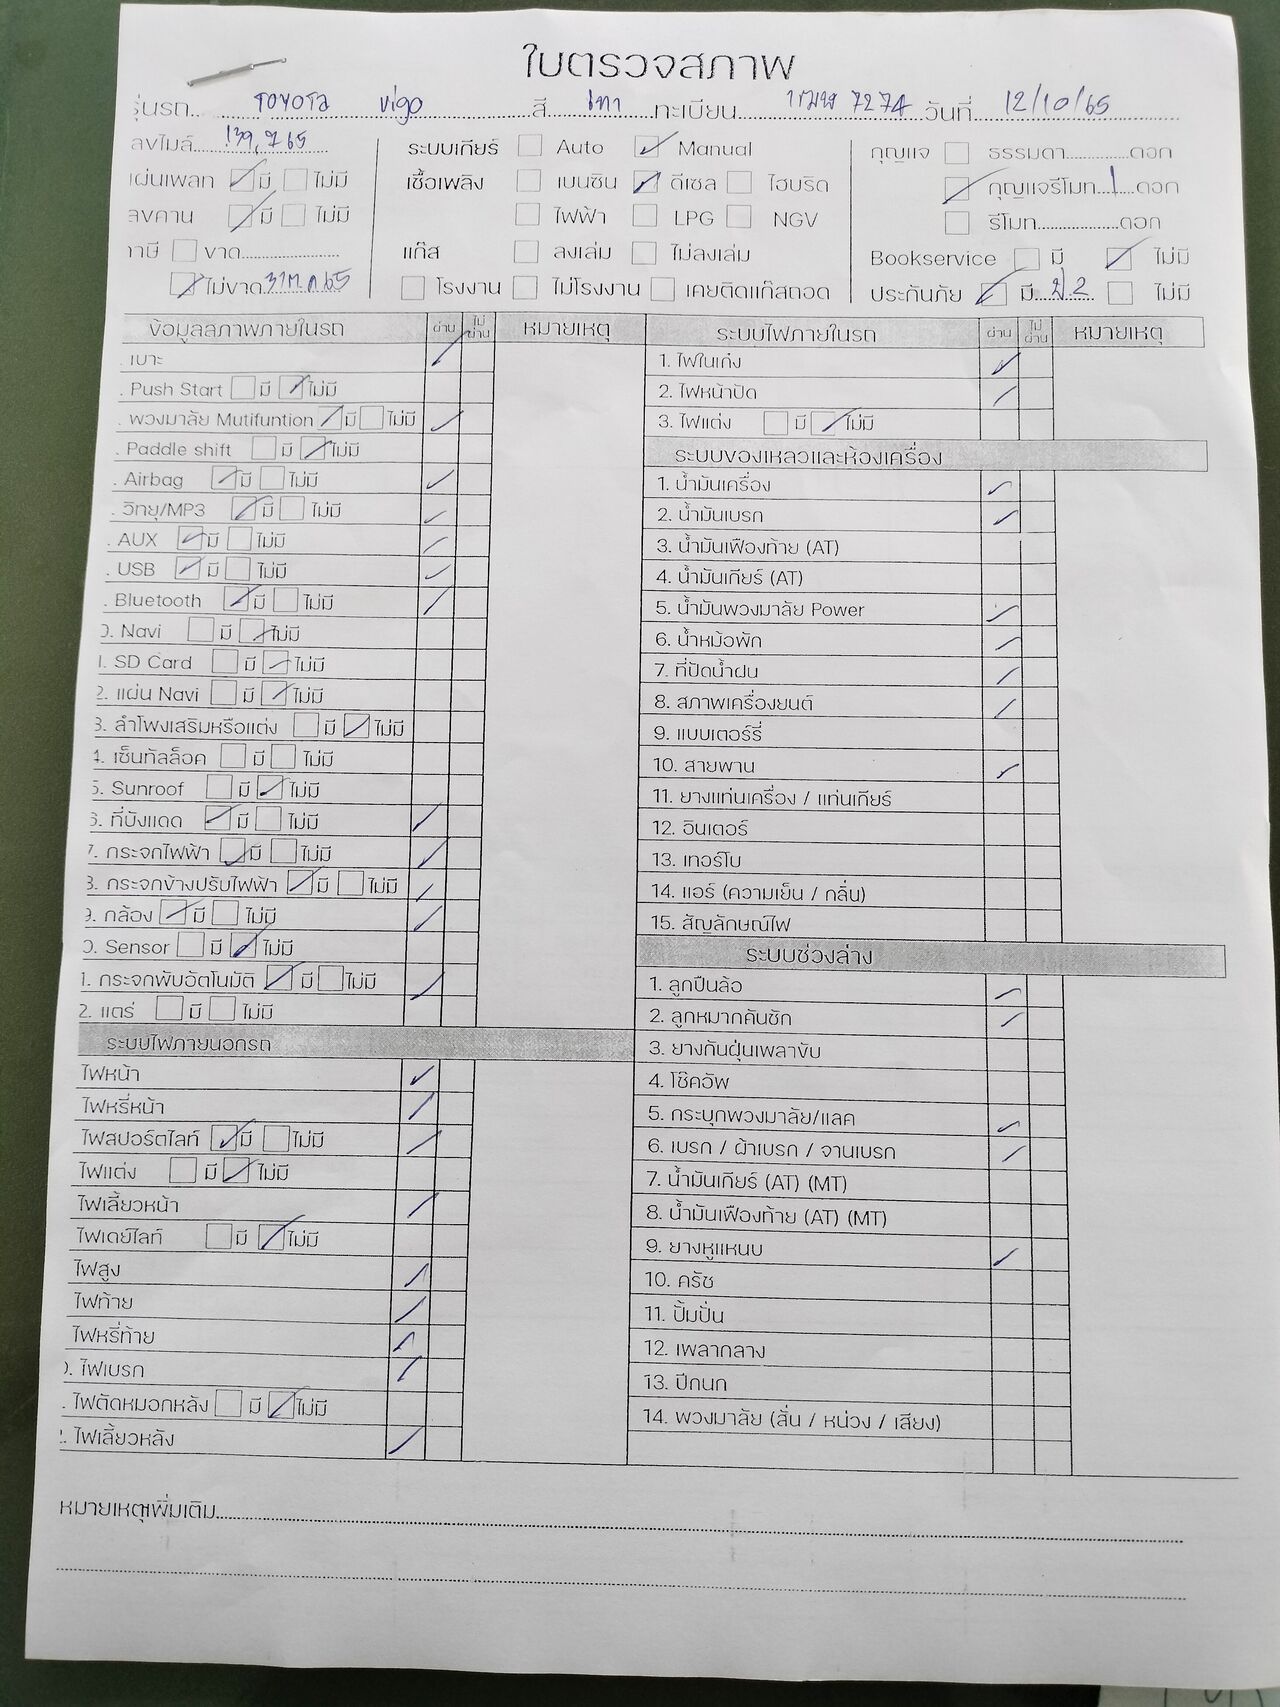 ใบตรวจสภาพ
รุ่นรถ TOYOTA vigo สี เทา ทะเบียน 7274 วันที่ 12/10/65
ลขไมล์ 139,765 ระบบเกียร์ Auto Manual กุญแจ ธรรมดา ดอก
แผ่นเพลท มี ไม่มี เชื้อเพลิง เบนซิน ดีเซล ไฮบริด กุญแจรีโมท 1 ดอก
ลขคาน มี ไม่มี ไฟฟ้า LPG NGV รีโมท ดอก
าษี ขาด แก๊ส ลงเล่ม ไม่ลงเล่ม Bookservice มี ไม่มี
ไม่ขาด 31 ต.ค 65 โรงงาน ไม่โรงงาน เคยติดแก๊สถอด ประกันภัย มี ป.2 ไม่มี
ข้อมูลสภาพภายในรถ ผ่าน ไม่ผ่าน หมายเหตุ ระบบไฟภายในรถ ผ่าน ไม่ผ่าน หมายเหตุ
. เบาะ 1. ไฟในเก๋ง
. Push Start มี ไม่มี 2. ไฟหน้าปัด
. พวงมาลัย Mutifuntion มี ไม่มี 3. ไฟแต่ง มี ไม่มี
. Paddle shift มี ไม่มี ระบบของเหลวและห้องเครื่อง
. Airbag มี ไม่มี 1. น้ำมันเครื่อง
. วิทยุ/MP3 มี ไม่มี 2. น้ำมันเบรก
. AUX มี ไม่มี 3. น้ำมันเฟืองท้าย (AT)
. USB มี ไม่มี 4. น้ำมันเกียร์ (AT)
. Bluetooth มี ไม่มี 5. น้ำมันพวงมาลัย Power
0. Navi มี ไม่มี 6. น้ำหม้อพัก
1. SD Card มี ไม่มี 7. ที่ปัดน้ำฝน
2. แผ่น Navi มี ไม่มี 8. สภาพเครื่องยนต์
3. ลำโพงเสริมหรือแต่ง มี ไม่มี 9. แบบเตอร์รี่
4. เซ็นทัลล็อค มี ไม่มี 10. สายพาน
5. Sunroof มี ไม่มี 11. ยางแท่นเครื่อง / แท่นเกียร์
6. ที่บังแดด มี ไม่มี 12. อินเตอร์
7. กระจกไฟฟ้า มี ไม่มี 13. เทอร์โบ
8. กระจกข้างปรับไฟฟ้า มี ไม่มี 14. แอร์ (ความเย็น / กลิ่น)
9. กล้อง มี ไม่มี 15. สัญลักษณ์ไฟ
0. Sensor มี ไม่มี ระบบช่วงล่าง
1. กระจกพับอัตโนมัติ มี ไม่มี 1. ลูกปืนล้อ
2. แตร่ มี ไม่มี 2. ลูกหมากคันชัก
ระบบไฟภายนอกรถ 3. ยางกันฝุ่นเพลาขับ
ไฟหน้า 4. โช๊คอัพ
ไฟหรี่หน้า 5. กระบุกพวงมาลัย/แลค
ไฟสปอร์ตไลท์ มี ไม่มี 6. เบรก / ผ้าเบรก / จานเบรก
ไฟแต่ง มี ไม่มี 7. น้ำมันเกียร์ (AT) (MT)
ไฟเลี้ยวหน้า 8. น้ำมันเฟืองท้าย (AT) (MT)
ไฟเดย์ไลท์ มี ไม่มี 9. ยางหูแหนบ
ไฟสูง 10. ครัช
ไฟท้าย 11. ปั้มปั่น
ไฟหรี่ท้าย 12. เพลากลาง
0. ไฟเบรก 13. ปีกนก
. ไฟตัดหมอกหลัง มี ไม่มี 14. พวงมาลัย (สั่น / หน่วง / เสียง)
2. ไฟเลี้ยวหลัง
หมายเหตุเพิ่มเติม